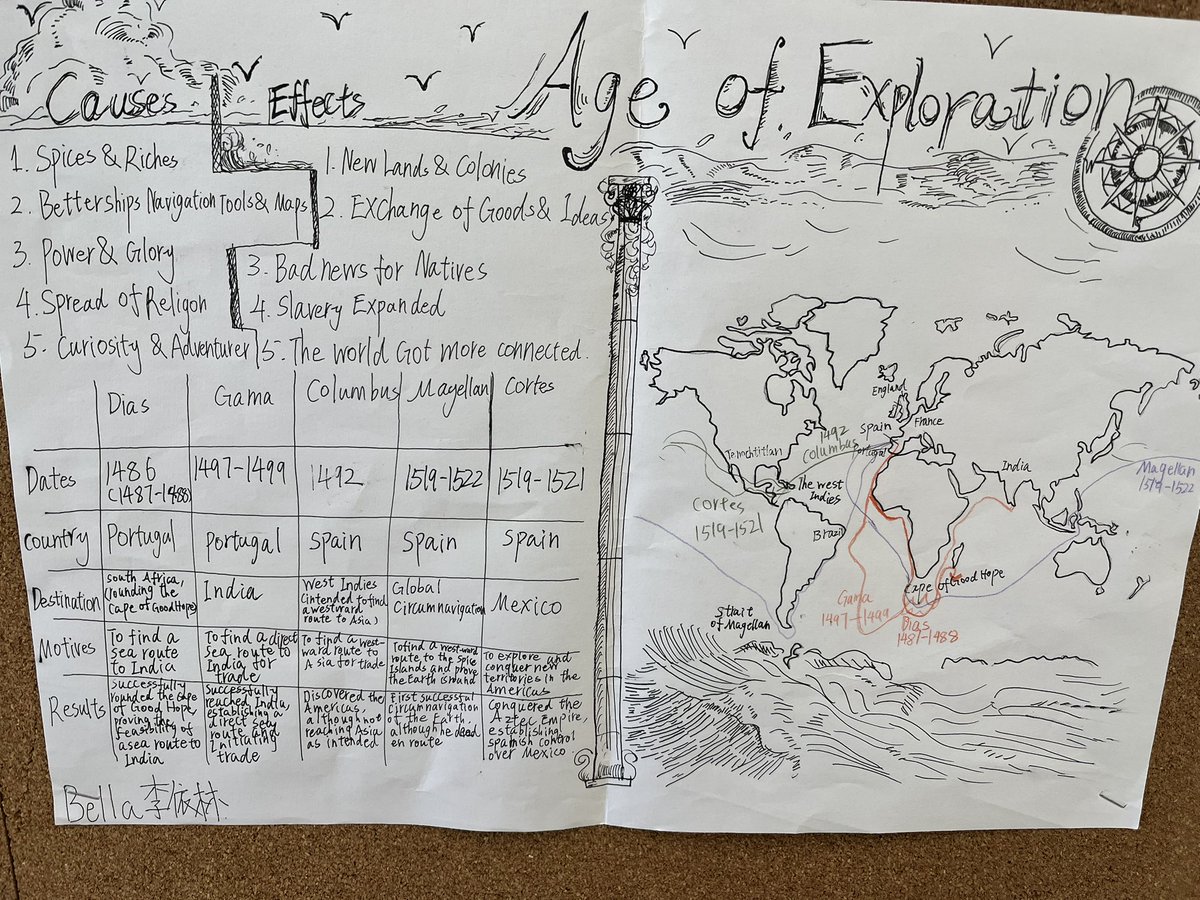 Age of Exploration
Causes
1. Spices & Riches
2. Betterships Navigation Tools & Maps
3. Power & Glory
4. Spread of Religon
5. Curiosity & Adventurer
Effects
1. New Lands & Colonies
2. Exchange of Goods & Ideas
3. Bad news for Natives
4. Slavery Expanded
5. The world Got more connected.
Dias Gama Columbus Magellan Cortes
Dates
1486
(1487-1488)
1497-1499
1492
1519-1522
1519-1521
Country
Portugal
Portugal
Spain
Spain
Spain
Destination
South Africa,
(ounding the
Cape of Good Hope)
India
West Indies
(intended to find
a westward
route to Asia)
Global
Circumnavigation
Mexico
Motives
To find a
sea route
to India
To find a direct
sea route to
India for
trade
To find a west-
ward route to
Asia for trade
To find a westward
route to the Spice
Islands and prove
the Earth is round
To explore and
conquer new
territories in the
Americas
Results
Successfully
rounded the Cape
of Good Hope,
proving the
feasibility of
a sea route to
India
Successfully
reached India,
establishing a
direct sea
route and
initiating
trade
Discovered the
Americas,
although not
reaching Asia
as intended
First successful
circumnavigation
of the Earth,
although he died
en route
Conquered the
Aztec Empire,
establishing
spanish control
over Mexico
Bella 李依林
England
France
Spain
Portugal
1492
Columbus
Temchtitlan
The West
Indies
Cortes
1519-1521
Brazil
India
Magellan
1519-1522
Cape of Good Hope
Gama
1497-1499
Dias
1487-1488
Strait
of Magellan